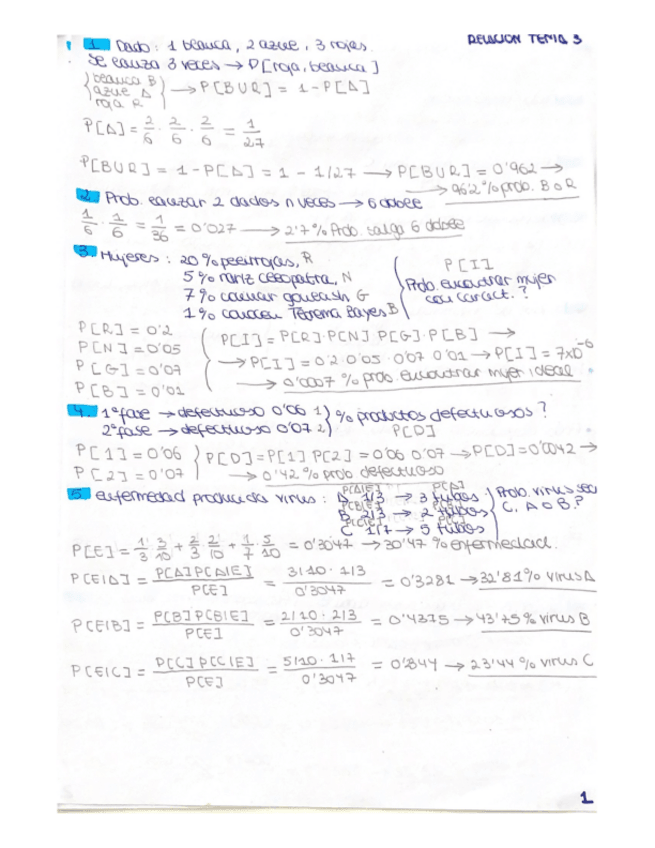 RELACION TEMA 3
1. Dado: 1 blanca, 2 azul, 3 rojas.
Se lanza 3 veces → P[roja, blanca]
blanca B
azul A
roja R
→ P[BUR] = 1 - P[A]
P[A] = 2/6 · 2/6 · 2/6 = 1/27
P[BUR] = 1 - P[A] = 1 - 1/27 → P[BUR] = 0'962 →
→ 96'2% prob. B o R
2. Prob. lanzar 2 dados n veces → 6 doble
1/6 · 1/6 = 1/36 = 0'027 → 2'7% Prob. salga 6 doble
3. Mujeres: 20% pelirrojas, R
5% nariz cleopatra, N
7% Gokvash G
1% conocen Teorema Bayes B
P[I]
Prob. encontrar mujer
con caract.?
P[R] = 0'2
P[N] = 0'05
P[G] = 0'07
P[B] = 0'01
P[I] = P[R]·P[N]·P[G]·P[B] →
→ P[I] = 0'2·0'05·0'07·0'01 → P[I] = 7x10^-6
→ 0'0007% prob. encontrar mujer ideal
4. 1ª fase → defectuoso 0'06 1)
2ª fase → defectuoso 0'07 2)
% productos defectuosos?
P[D]
P[1] = 0'06
P[2] = 0'07
P[D] = P[1]·P[2] = 0'06·0'07 → P[D] = 0'0042 →
→ 0'42% prob defectuoso
5. enfermedad producida virus:
A 1/3 → 3 tubos
B 2/3 → 2 tubos
C 1/7 → 5 tubos
Prob. virus sea
C, A o B?
P[E] = 1/3 · 3/10 + 2/3 · 2/10 + 1/7 · 5/10 = 0'3047 → 30'47% enfermedad.
P[E|A] = P[A]P[A|E] / P[E] = 3/10 · 1/3 / 0'3047 = 0'3281 → 32'81% virus A
P[E|B] = P[B]P[B|E] / P[E] = 2/10 · 2/3 / 0'3047 = 0'4375 → 43'75% virus B
P[E|C] = P[C]P[C|E] / P[E] = 5/10 · 1/7 / 0'3047 = 0'2344 → 23'44% virus C
1